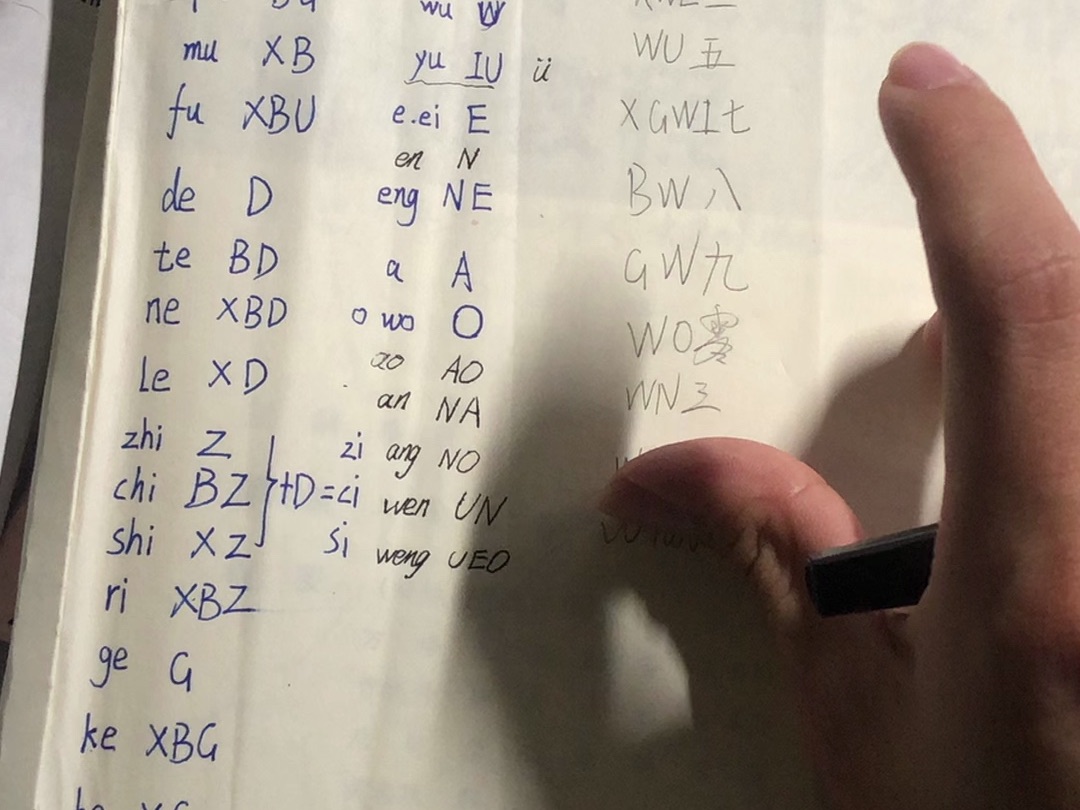 wu W
mu XB yu IU ü WU 五
fu XBU e.ei E XGWI七
en N
de D eng NE BW八
te BD a A GW九
ne XBD o wo O WO零
le XD ao AO
an NA WN三
zhi Z zi ang NO
chi BZ +D=ci wen UN
shi XZ si weng UEO
ri XBZ
ge G
ke XBG